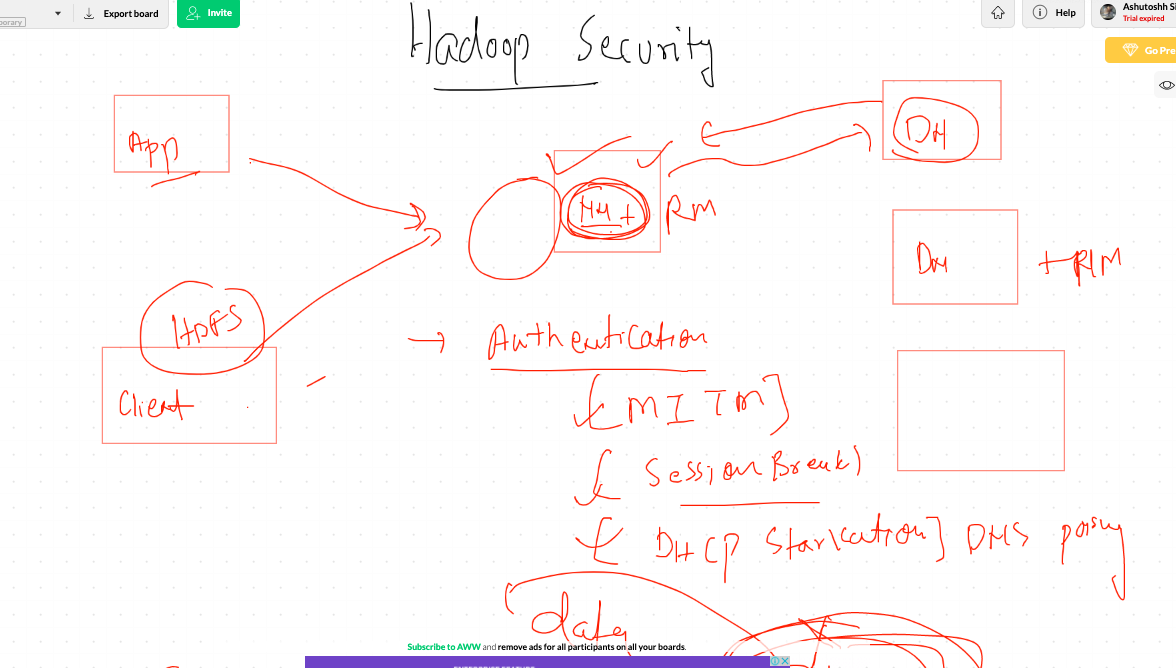 porary)
Export board
Invite
Help
Ashutoshh Si
Trial expired
Go Pre
Hadoop Security
App
DN
NN + RM
DN + NM
HDFS
Client
→ Authentication
[MITM]
Session Break)
DHCP Starvation] DNS
data
Subscribe to AWW and remove ads for all participants on all your boards.
ENTERPRISE FEATURE